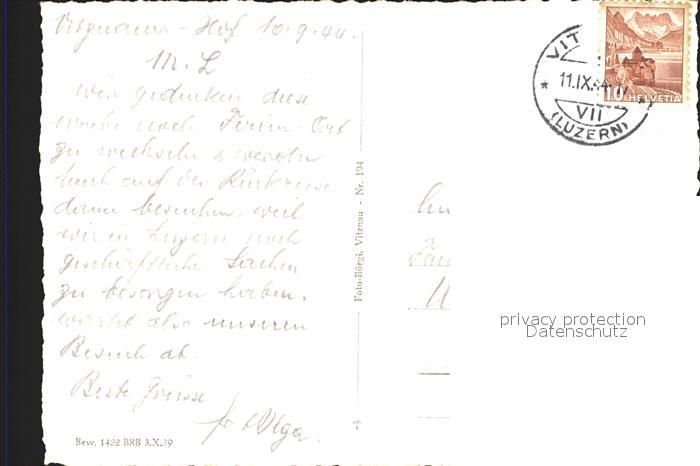 Vitznau - Hof 10.9.44
M. L
Wir gedenken diese
Woche noch Ferien-Ort
zu wechseln & werden
Euch auf der Rückreise
dann besuchen, weil
wir in Luzern noch
geschäftliche Sachen
zu besorgen haben.
wartet also unseren
Besuch ab.
Beste Grüsse
& Olga.
Bew. 1482 BRB 3.X.39
Foto-Bürgi, Vitznau - Nr. 194
VIT
11.IX.44
VII
(LUZERN)
10 HELVETIA
Fam
privacy protection
Datenschutz